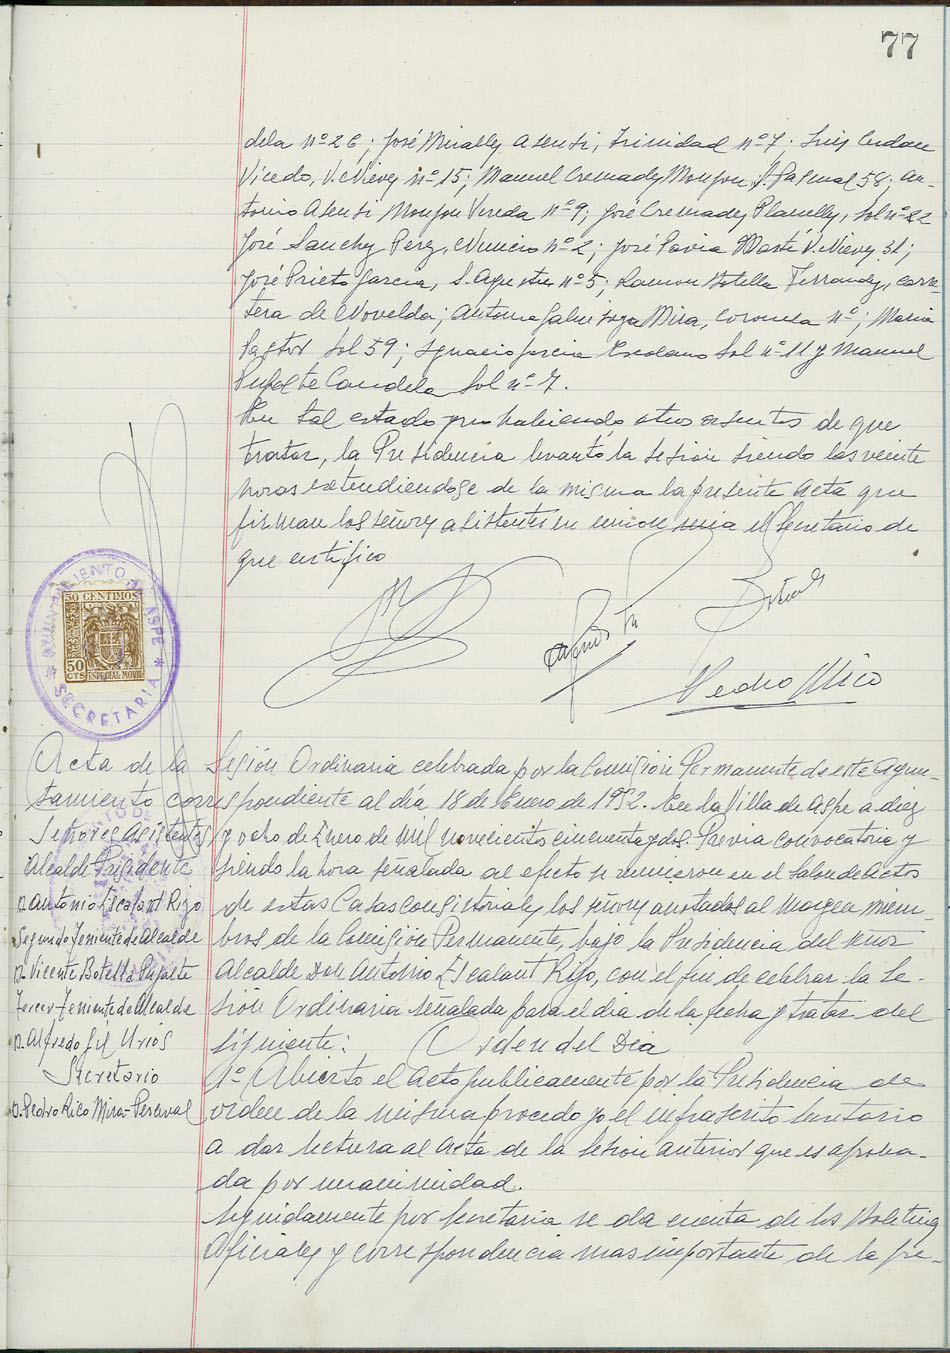 77
dela nº 26; José Miralles Asensi, Trinidad nº 7; Luis Cerdan
Vicedo, V. Nieves nº 15; Manuel Cremades Monzon, S. Pascual 58; An-
tonio Asensi Monzon Vereda nº 9; José Cremades Planelles, Sol nº 22
José Sanchez Perez, Nuncio nº 2; José Pavia Martí V. Nieves 31;
José Prieto Garcia, S. Agustin nº 5; Ramon Botella Ferrandez, carre-
tera de Novelda; Antonio Galinsoga Mira, Coronela nº; Maria
Pastor Sol 59; Ignacio Garcia Escolano Sol nº 11 y Manuel
Pujalte Candela Sol nº 7.
En tal estado y no habiendo otros asuntos de que
tratar, la Presidencia levantó la sesión siendo las veinte
horas extendiendose de la misma la presente acta que
firman los señores asistentes en union mia el Secretario de
que certifico
Pedro Rico
AYUNTAMIENTO DE ASPE
SECRETARIA
50 CENTIMOS
50
CTS
ESPECIAL MOVIL
Acta de la Sesión Ordinaria celebrada por la Comisión Permanente de este Ayun-
tamiento correspondiente al día 18 de Enero de 1952. En la Villa de Aspe a diez
y ocho de Enero de mil novecientos cincuenta y dos. Previa convocatoria y
siendo la hora señalada al efecto se reunieron en el Salon de Actos
de estas Casas consistoriales los señores anotados al margen miem-
bros de la Comisión Permanente, bajo la Presidencia del señor
Alcalde Don Antonio Escalant Rizo, con el fin de celebrar la Se-
sión Ordinaria señalada para el dia de la fecha y tratar del
siguiente: Orden del Dia
Señores Asistentes
Alcalde Presidente
D. Antonio Escalant Rizo
Segundo Teniente de Alcalde
D. Vicente Botella Pujalte
Tercer Teniente de Alcalde
D. Alfredo Gil Urios
Secretario
D. Pedro Rico Mira-Perceval
1º Abierto el acto publicamente por la Presidencia de
orden de la misma procedo yo el infrascrito Secretario
a dar lectura al acta de la sesion anterior que es aproba-
da por unanimidad.
Seguidamente por Secretaria se da cuenta de los Boletines
Oficiales y correspondencia mas importante de la pre-